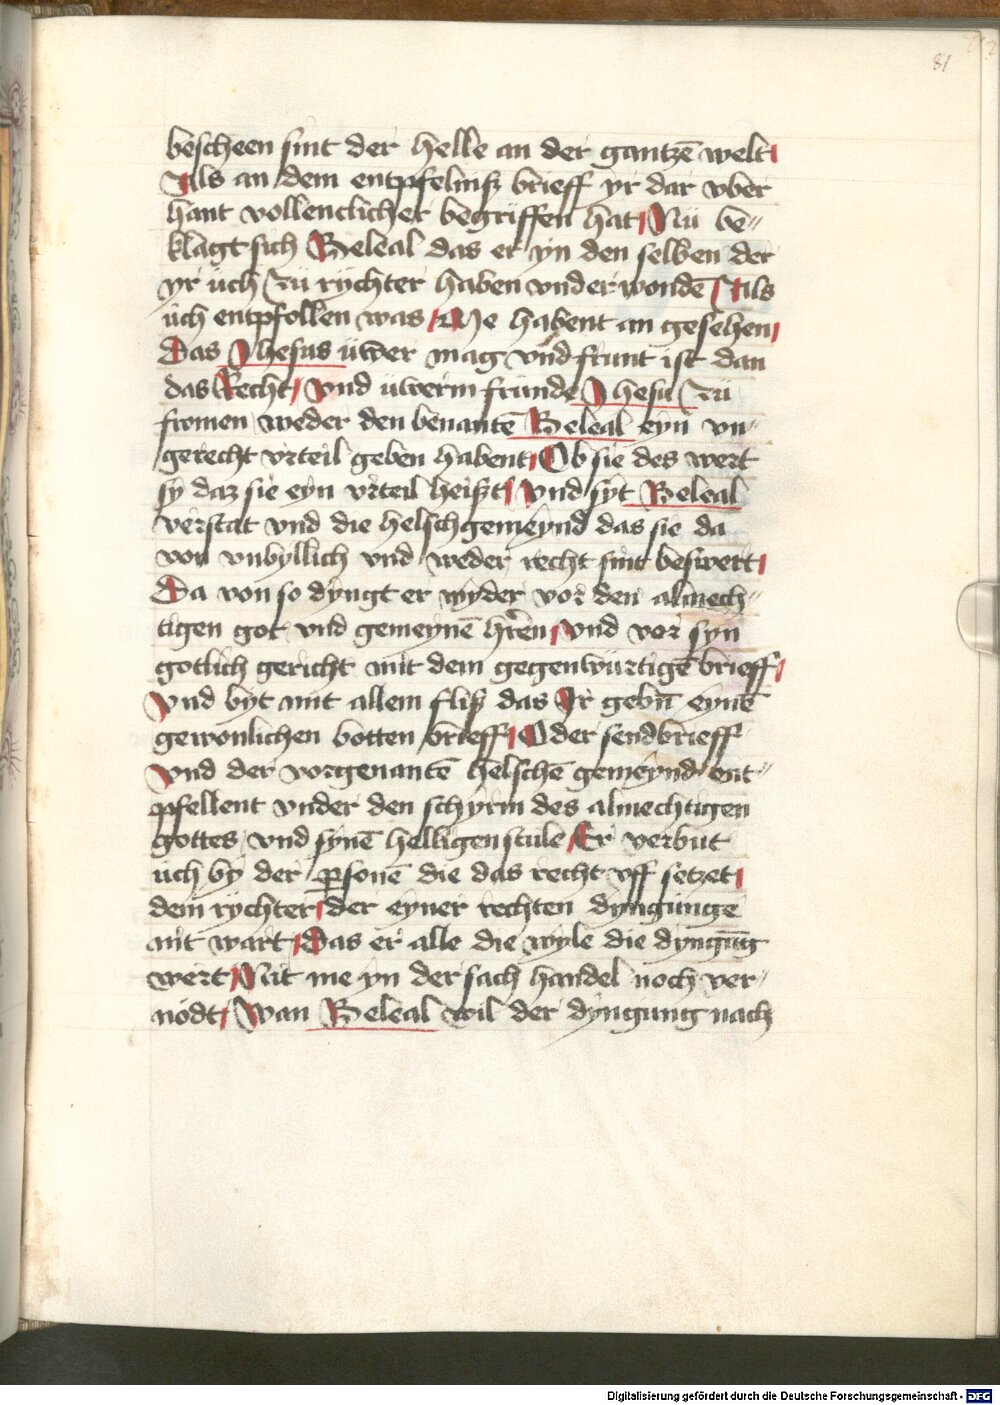 81
bescheen sint der helle an der gantzē welt
Als an dem entpfelniß brieff yr dar vber
hant vollenclicher begriffen hat Nü be"
klagt sich Beleal das er yn den selben der
yr üch zü rychter haben vnderwondē Als
üch entpfollen was Me habent an gesehen
Das Jhesus üwer mag vnd frunt ist dan
das Recht Vnd üwerm fründe Jhesu zü
fromen weder den benantē Beleal eyn vn"
gerecht vrteil geben habent Ob sie des wert
sy daz sie eyn vrteil heißt Vnd syt Beleal
verstat vnd die helsch gemeynd das sie da
von vnbyllich vnd weder recht sint beswert
Da von so dyngt er wyder vor den almech"
tigen got vnd gemeynē hr̄en Vnd vor syn
gotlich gericht mit dem gegenwürtigē brieff
Vnd byt mit allem fliß das Ir gebn̄ eynē
gewonlichen botten brieff Oder sendbrieff
Vnd der vorgenantē helschē gemeynd ent"
pfellent vnder den schyrm des almechtigen
gottes vnd synē helligen stule Er verbut
üch by der ꝑsonē die das recht vff setzet
dem rychter der eyner rechten dyngunge
nit wart Das er alle die wyle die dyngūg
wert Nit me yn der sach handel noch ver
nödt Wan Beleal wil der dyngung nach
Digitalisierung gefördert durch die Deutsche Forschungsgemeinschaft - DFG